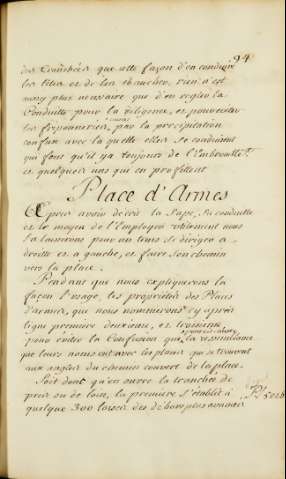 94
des Tranchées que cette façon d'en conduire
les têtes et de les ébaucher, rien n'est
aussy plus necessaire que d'en regler la
Conduitte pour la diligence, et pour eviter
les friponneries, par la precipitation
confuse avec laquelle elles se conduisent
qui font qu'il y a toujours de l'Embrouille
et quelques uns qui en profittent
Place d'Armes
Apres avoir décrit la Sape, sa conduitte
et le moyen de l'Employer utilement nous
la laisserons pour un tems se diriger a
droitte et a gauche, et faire son chemin
vers la place.
Pendant que nous expliquerons la
façon l'usage, les proprietés des Places
d'armes, que nous nommerons cy après
ligne premiere deuxieme, et troisieme
pour eviter la Confusion que la ressemblance
que leurs noms ont avec les places qui se trouvent
aux angles du chemin couvert de la place.
Soit dont qu'on ouvre la tranchée de
près ou de loin, la premiere s'établit a
quelque 300 toises des dehors plus avancés